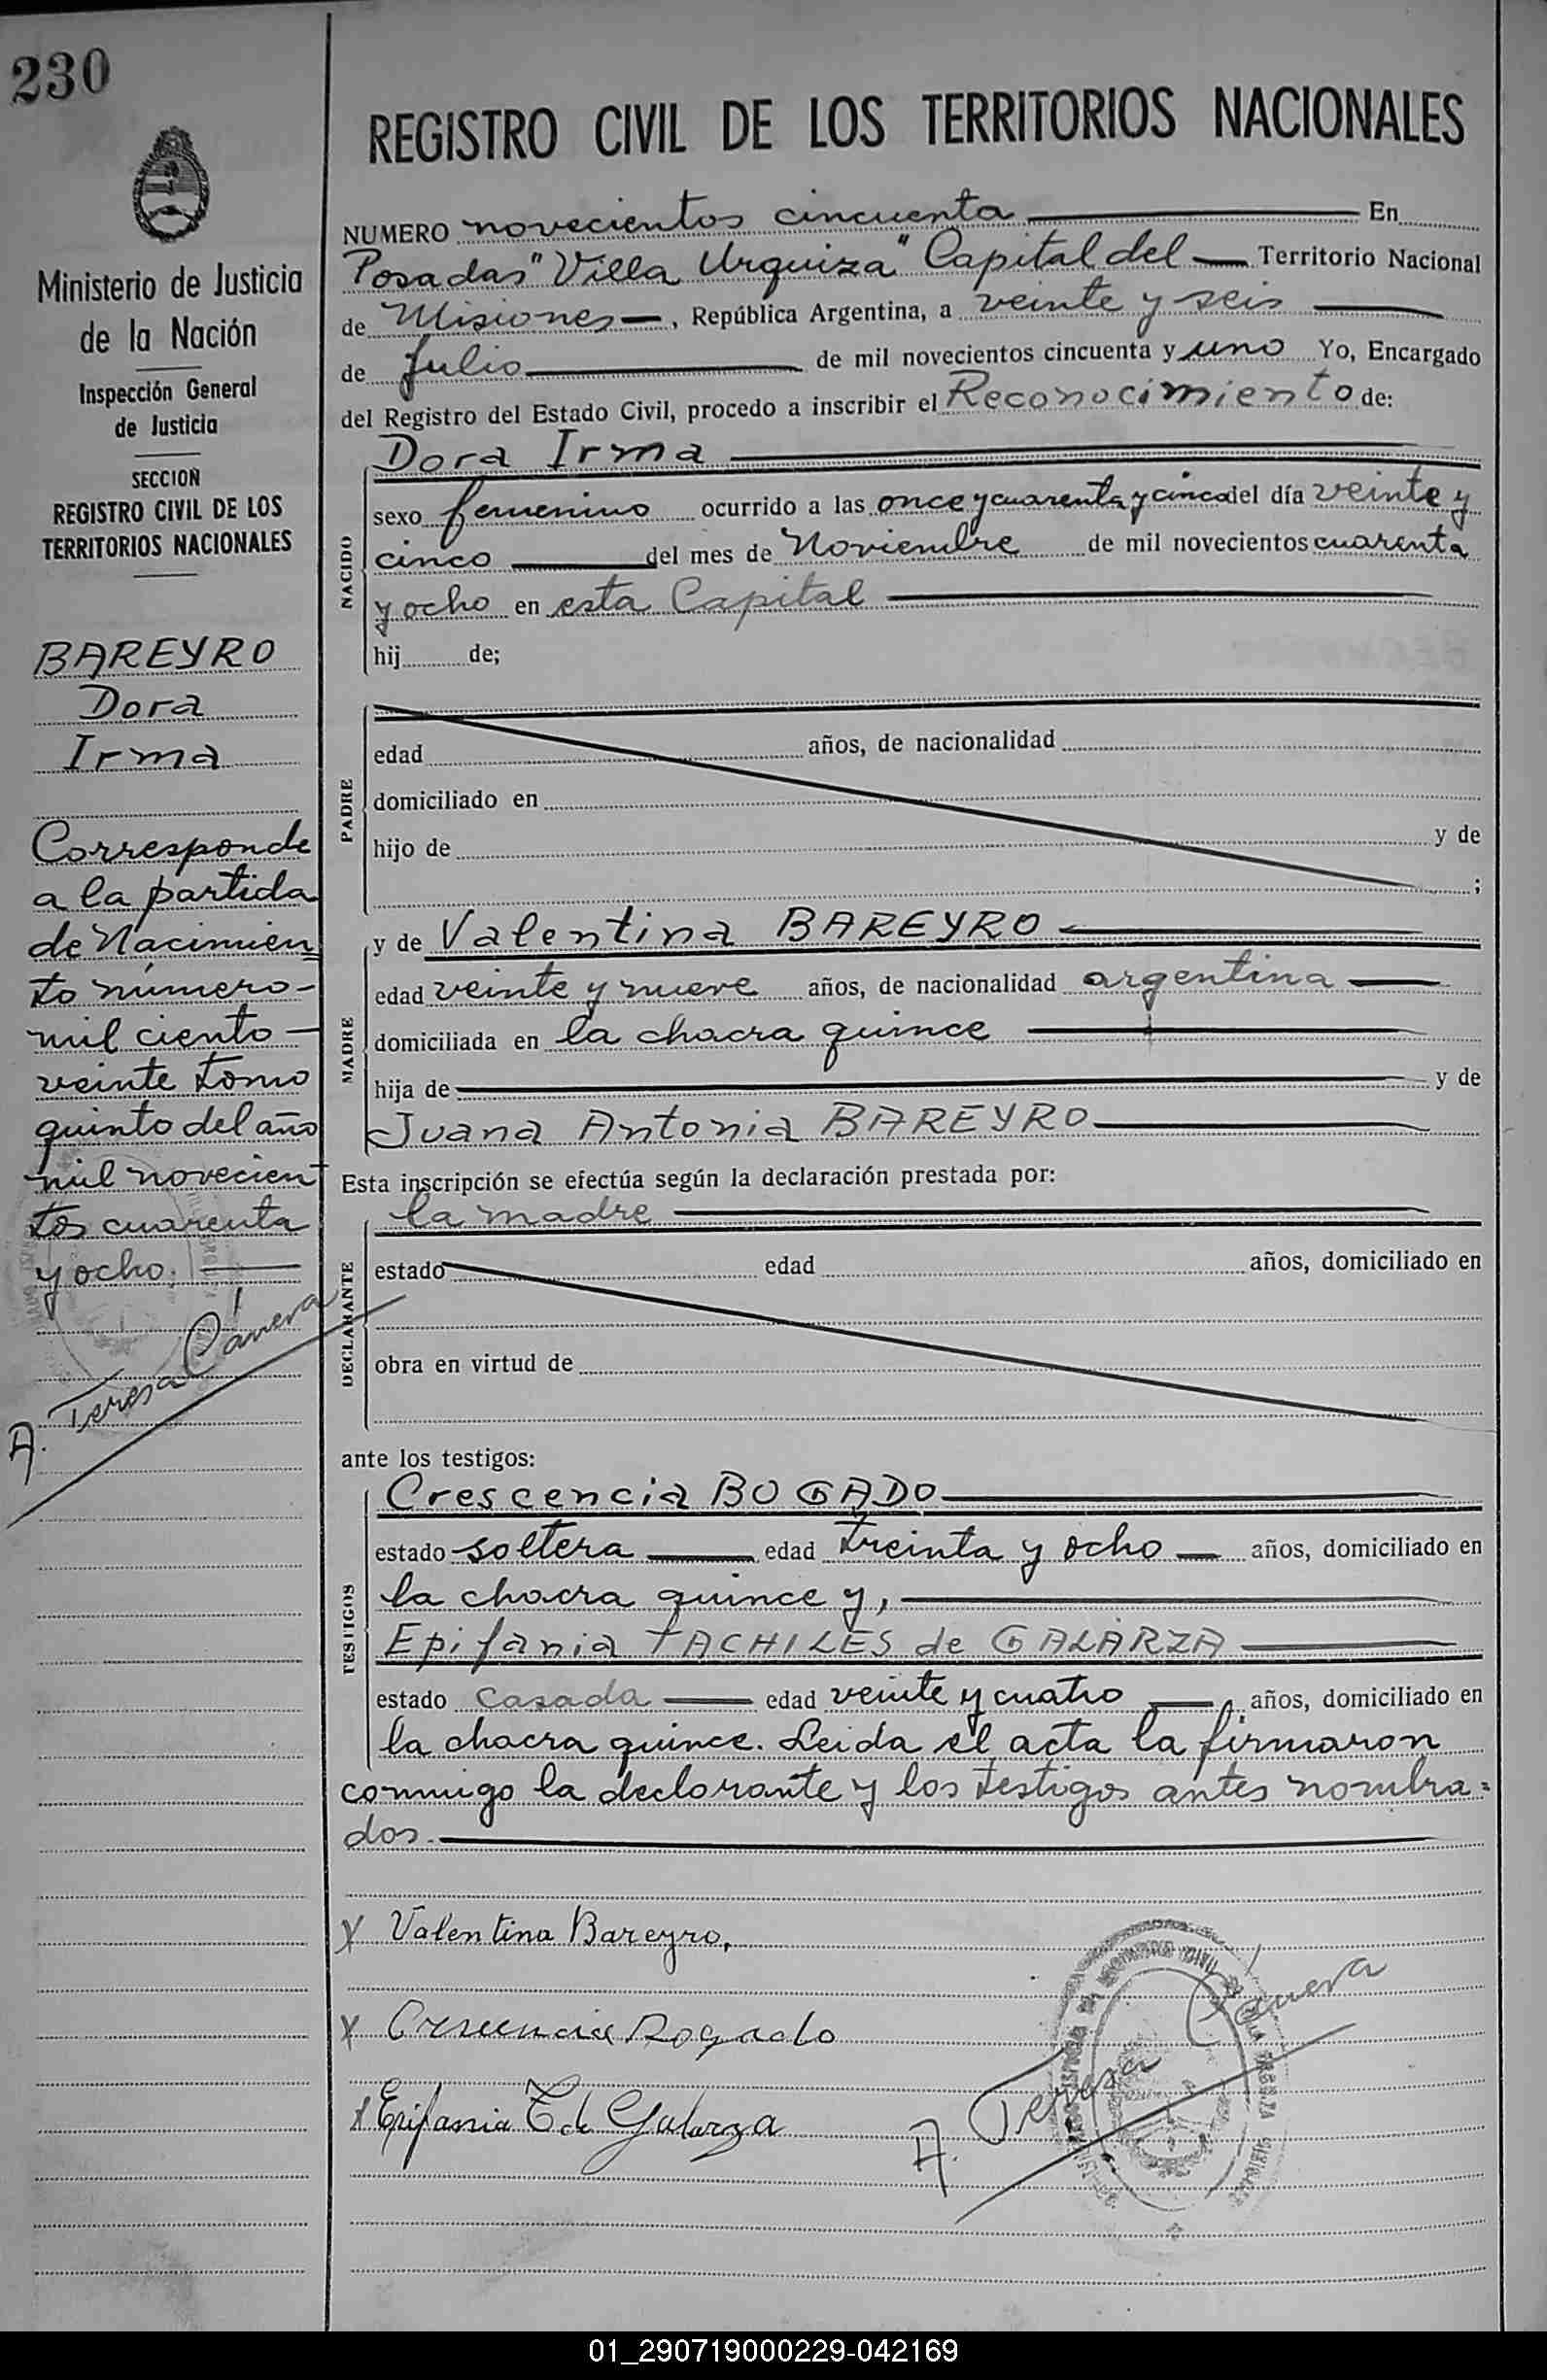 230
Ministerio de Justicia
de la Nación
Inspección General
de Justicia
SECCION
REGISTRO CIVIL DE LOS
TERRITORIOS NACIONALES
BAREYRO
Dora
Irma
Corresponde
a la partida
de Nacimien
to número-
mil ciento -
veinte tomo
quinto del año
mil novecien
tos cuarenta
y ocho. -
A. Teresa
REGISTRO CIVIL DE LOS TERRITORIOS NACIONALES
NUMERO novecientos cincuenta En
Posadas "Villa Urquiza" Capital del Territorio Nacional
de Misiones, República Argentina, a veinte y seis
de Julio de mil novecientos cincuenta y uno Yo, Encargado
del Registro del Estado Civil, procedo a inscribir el Reconocimiento de:
Dora Irma
NACIDO
sexo femenino ocurrido a las once y cuarenta y cinco del día veinte y
cinco del mes de Noviembre de mil novecientos cuarenta
y ocho en esta Capital
hij de;
PADRE
edad años, de nacionalidad
domiciliado en
hijo de y de
;
y de Valentina BAREYRO
MADRE
edad veinte y nueve años, de nacionalidad argentina
domiciliada en la chacra quince
hija de y de
Juana Antonia BAREYRO
Esta inscripción se efectúa según la declaración prestada por:
la madre
DECLARANTE
estado edad años, domiciliado en
obra en virtud de
ante los testigos:
Crescencia BOGADO
TESTIGOS
estado soltera edad treinta y ocho años, domiciliado en
la chacra quince y,
Epifania TACHILES de GALARZA
estado casada edad veinte y cuatro, años, domiciliado en
la chacra quince. Leida el acta la firmaron
conmigo la declarante y los testigos antes nombra=
dos.
X Valentina Bareyro,
X Crescencia Bogado
X Epifania T de Galarza
A. Teresa
01_290719000229-042169